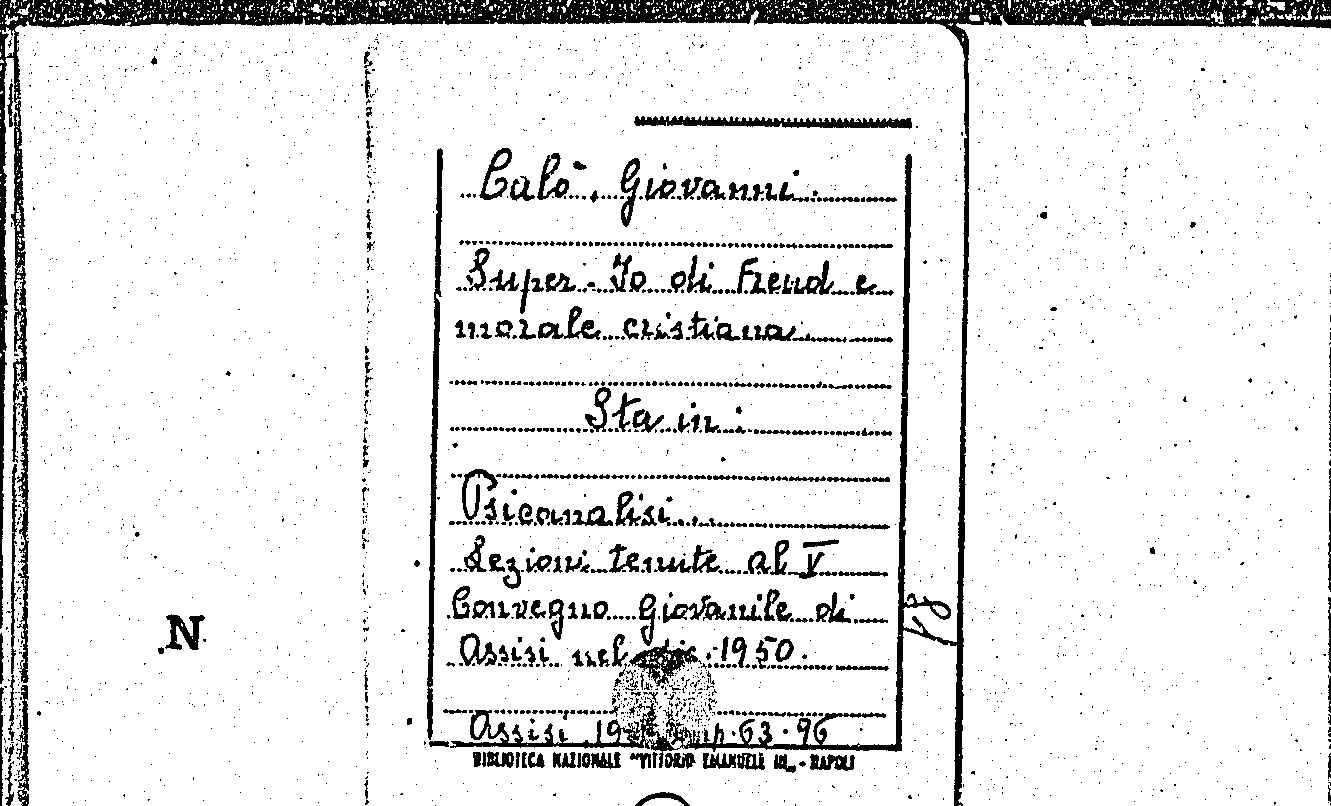 Calò, Giovanni.
Super-Io di Freud e
morale cristiana.
Sta in:
Psicoanalisi...
Lezioni tenute al V
Convegno Giovanile di
Assisi nel dic. 1950.
Assisi 19 pp. 63-96
BIBLIOTECA NAZIONALE "VITTORIO EMANUELE III" - NAPOLI
N
18